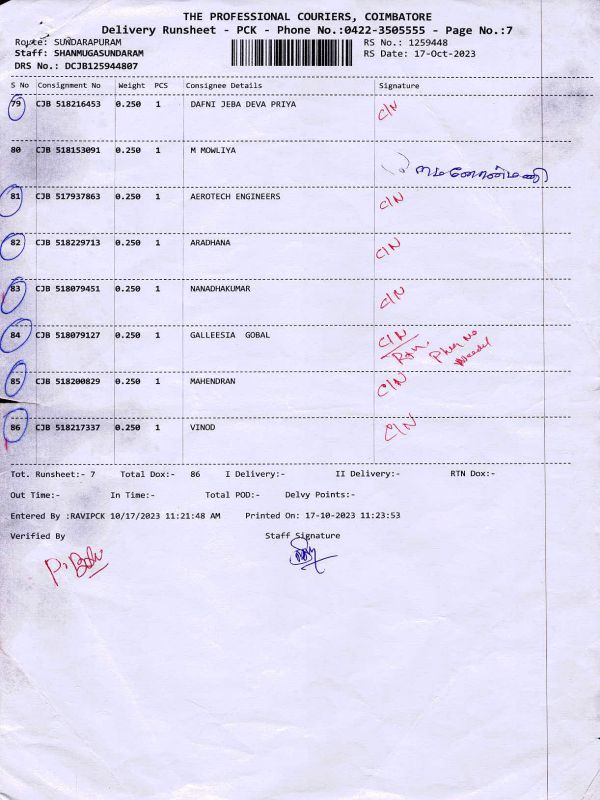 THE PROFESSIONAL COURIERS, COIMBATORE
Delivery Runsheet - PCK - Phone No.:0422-3505555 - Page No.:7
Route: SUNDARAPURAM RS No.: 1259448
Staff: SHANMUGASUNDARAM RS Date: 17-Oct-2023
DRS No.: DCJB125944807
S No Consignment No Weight PCS Consignee Details Signature
79 CJB 518216453 0.250 1 DAFNI JEBA DEVA PRIYA C/N
80 CJB 518153091 0.250 1 M MOWLIYA
81 CJB 517937863 0.250 1 AEROTECH ENGINEERS C/N
82 CJB 518229713 0.250 1 ARADHANA C/N
83 CJB 518079451 0.250 1 NANADHAKUMAR C/N
84 CJB 518079127 0.250 1 GALLEESIA GOBAL C/N
85 CJB 518200829 0.250 1 MAHENDRAN C/N
86 CJB 518217337 0.250 1 VINOD C/N
Tot. Runsheet:- 7 Total Dox:- 86 I Delivery:- II Delivery:- RTN Dox:-
Out Time:- In Time:- Total POD:- Delvy Points:-
Entered By :RAVIPCK 10/17/2023 11:21:48 AM Printed On: 17-10-2023 11:23:53
Verified By Staff Signature